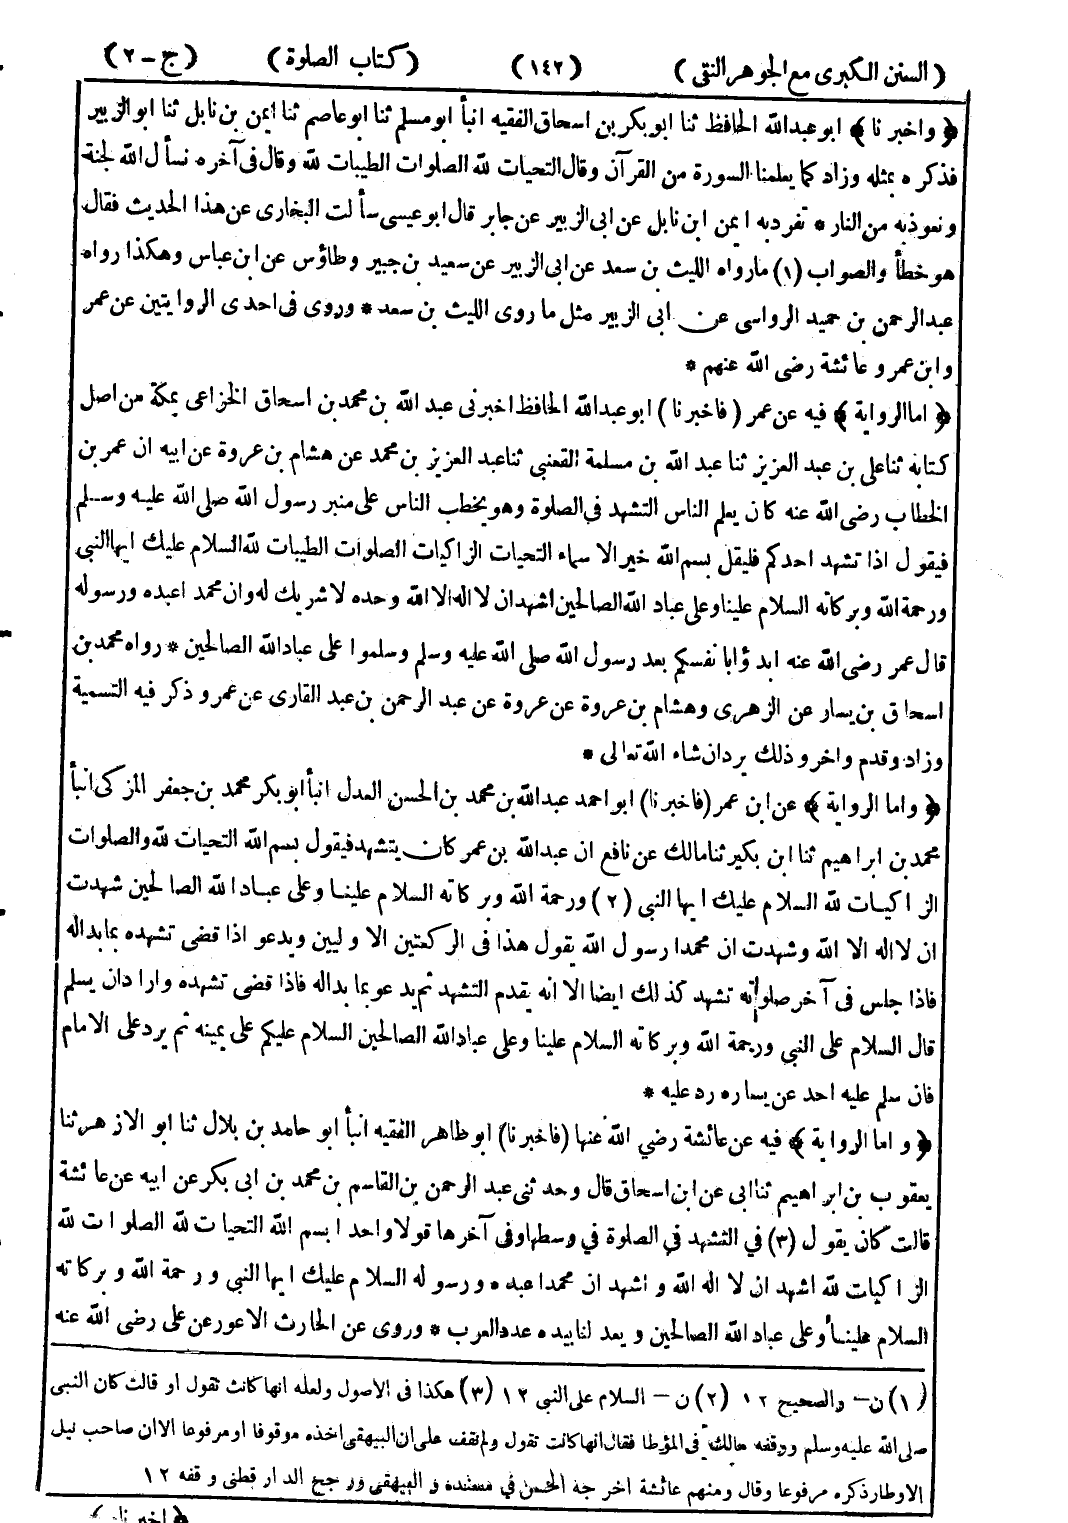 (السنن الكبرى مع الجوهر النقى) (١٤٢) (كتاب الصلوة) (ج - ٢)
﴿ واخبرنا ﴾ ابو عبد الله الحافظ ثنا ابو بكر بن اسحاق الفقيه انبأ ابو مسلم ثنا ابو عاصم ثنا ايمن بن نابل ثنا ابو الزبير
فذكره بمثله وزاد كما يعلمنا السورة من القرآن وقال التحيات لله الصلوات الطيبات لله وقال فى آخره نسأل الله الجنة
ونعوذ به من النار * تفرد به ايمن ابن نابل عن ابى الزبير عن جابر قال ابو عيسى سألت البخارى عن هذا الحديث فقال
هو خطأ والصواب (١) ما رواه الليث بن سعد عن ابى الزبير عن سعيد بن جبير وطاؤس عن ابن عباس وهكذا رواه
عبد الرحمن بن حميد الرواسى عن ابى الزبير مثل ما روى الليث بن سعد * وروى فى احدى الروايتين عن عمر
وابن عمر وعائشة رضى الله عنهم *
﴿ اما الرواية ﴾ فيه عن عمر (فاخبرنا) ابو عبد الله الحافظ اخبرنى عبد الله بن محمد بن اسحاق الخزاعى بمكة من اصل
كتابه ثنا على بن عبد العزيز ثنا عبد الله بن مسلمة القعنبى ثنا عبد العزيز بن محمد عن هشام بن عروة عن ابيه ان عمر بن
الخطاب رضى الله عنه كان يعلم الناس التشهد فى الصلوة وهو يخطب الناس على منبر رسول الله صلى الله عليه وسلم
فيقول اذا تشهد احدكم فليقل بسم الله خير الاسماء التحيات الزاكيات الصلوات الطيبات لله السلام عليك ايها النبى
ورحمة الله وبركاته السلام علينا وعلى عباد الله الصالحين اشهد ان لا اله الا الله وحده لا شريك له وان محمدا عبده ورسوله
قال عمر رضى الله عنه ابدؤا بانفسكم بعد رسول الله صلى الله عليه وسلم وسلموا على عباد الله الصالحين * رواه محمد بن
اسحاق بن يسار عن الزهرى وهشام بن عروة عن عروة عن عبد الرحمن بن عبد القارى عن عمر وذكر فيه التسمية
وزاد وقدم واخر وذلك يرد ان شاء الله تعالى *
﴿ واما الرواية ﴾ عن ابن عمر (فاخبرنا) ابو احمد عبد الله بن محمد بن الحسن العدل انبأ ابو بكر محمد بن جعفر المزكى انبأ
محمد بن ابراهيم ثنا ابن بكير ثنا مالك عن نافع ان عبد الله بن عمر كان يتشهد فيقول بسم الله التحيات لله والصلوات
الزاكيات لله السلام عليك ايها النبى (٢) ورحمة الله وبركاته السلام علينا وعلى عباد الله الصالحين شهدت
ان لا اله الا الله وشهدت ان محمدا رسول الله يقول هذا فى الركعتين الاوليين ويدعو اذا قضى تشهده بما بدا له
فاذا جلس فى آخر صلوته تشهد كذلك ايضا الا انه يقدم التشهد ثم يدعو بما بدا له فاذا قضى تشهده واراد ان يسلم
قال السلام على النبي ورحمة الله وبركاته السلام علينا وعلى عباد الله الصالحين السلام عليكم على يمينه ثم يرد على الامام
فان سلم عليه احد عن يساره رد عليه *
﴿ واما الرواية ﴾ فيه عن عائشة رضي الله عنها (فاخبرنا) ابو طاهر الفقيه انبأ ابو حامد بن بلال ثنا ابو الازهر ثنا
يعقوب بن ابراهيم ثنا ابى عن ابن اسحاق قال وحدثنى عبد الرحمن بن القاسم بن محمد بن ابى بكر عن ابيه عن عائشة
قالت كان يقول (٣) في التشهد في الصلوة في وسطها وفى آخرها قولا واحدا بسم الله التحيات لله الصلوات لله
الزاكيات لله اشهد ان لا اله الله و اشهد ان محمدا عبده ورسوله السلام عليك ايها النبي ورحمة الله وبركاته
السلام علينا وعلى عباد الله الصالحين ويعد لنا بيده عدد العرب * وروى عن الحارث الاعور عن على رضى الله عنه
(١) ن - والصحيح ١٢ (٢) ن - السلام على النبى ١٢ (٣) هكذا فى الاصول ولعله انها كانت تقول او قالت كان النبى
صلى الله عليه وسلم ووقفه مالك فى المؤطا فقال انها كانت تقول ولم نقف على ان البيهقى اخذه موقوفا او مرفوعا الا ان صاحب نيل
الاوطار ذكره مرفوعا وقال ومنهم عائشة اخرجه الحسن في مسنده و البيهقى ورجح الدار قطنى وقفه ١٢
﴿ اخبرنا ﴾